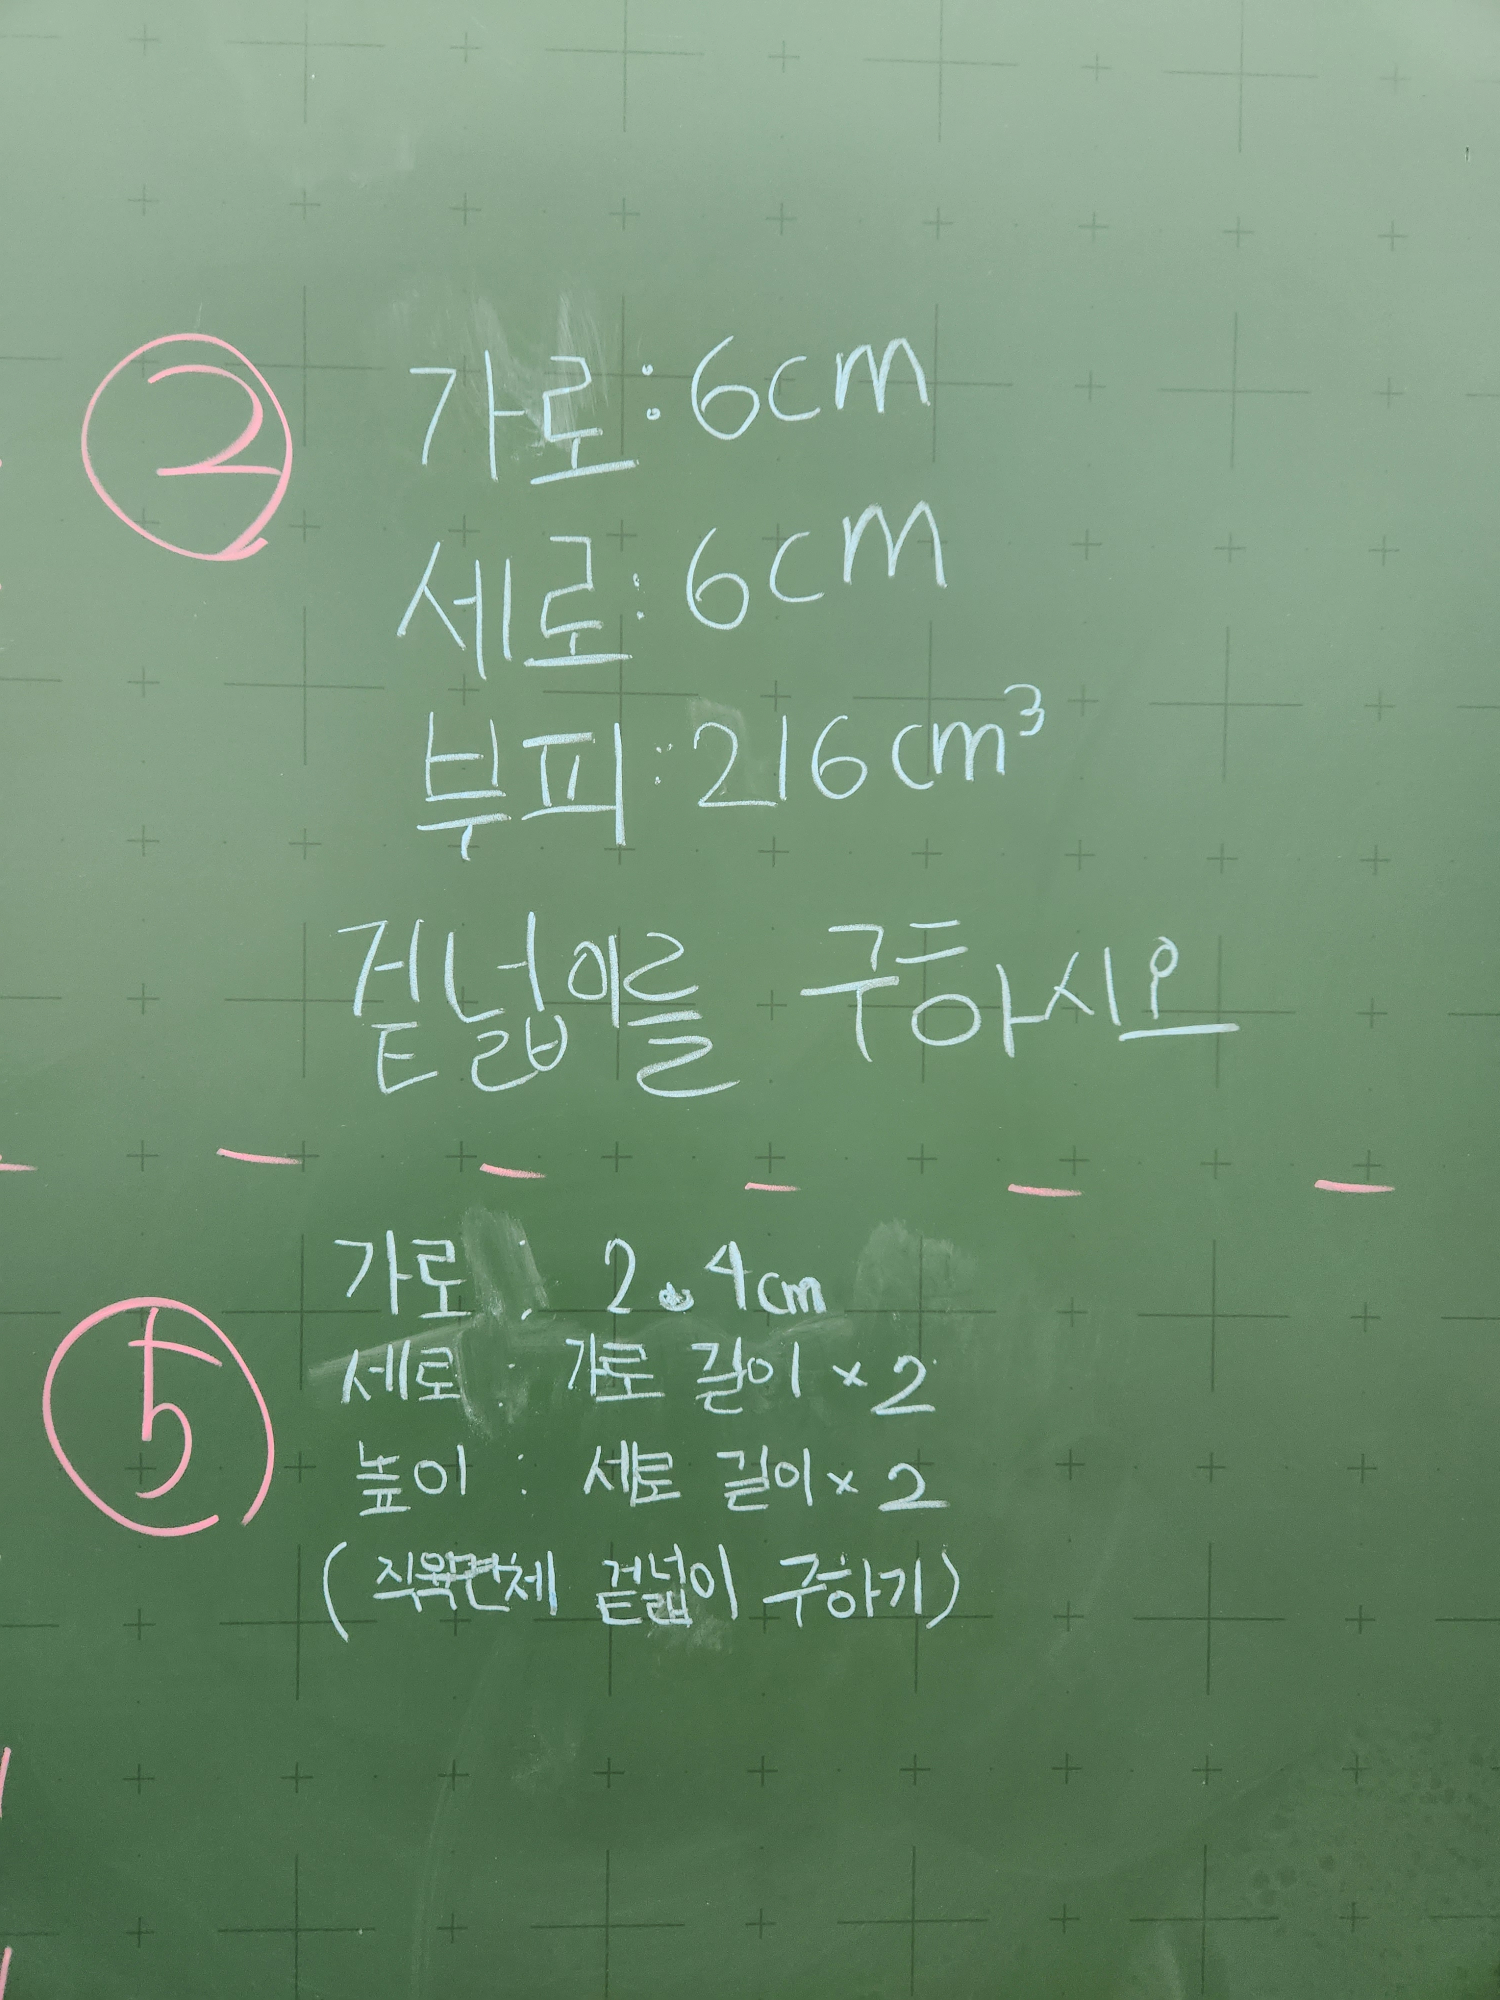 ②
가로:6cm
세로:6cm
부피:216cm³
겉넓이를 구하시오
⑤
가로 : 2.4cm
세로 : 가로 길이 × 2
높이 : 세로 길이 × 2
(직육면체 겉넓이 구하기)